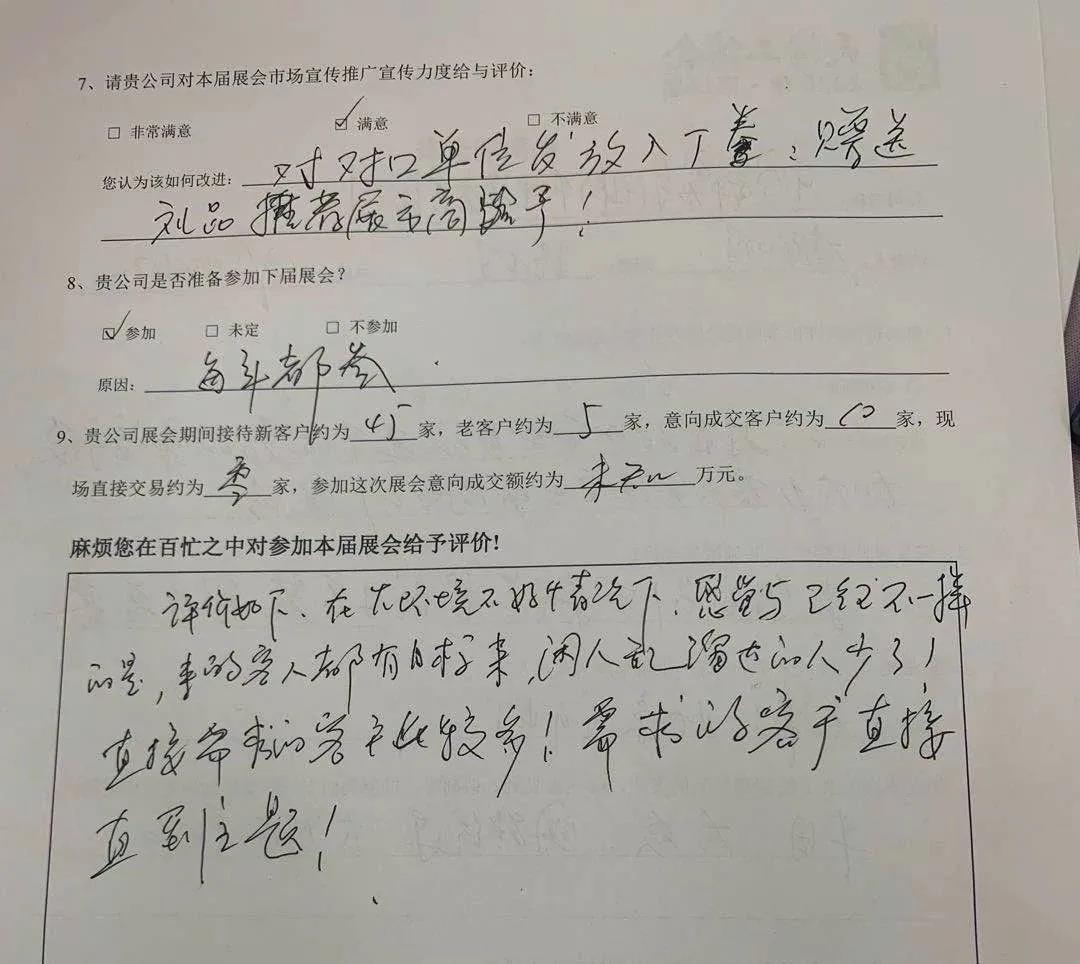 7、请贵公司对本届展会市场宣传推广宣传力度给与评价:
□ 非常满意 ☑ 满意 □ 不满意
您认为该如何改进: 对对口单位发放入门券；赠送
礼品推荐展示商给予！
8、贵公司是否准备参加下届展会?
☑ 参加 □ 未定 □ 不参加
原因: 每年都参
9、贵公司展会期间接待新客户约为 45 家，老客户约为 5 家，意向成交客户约为 10 家，现
场直接交易约为 零 家，参加这次展会意向成交额约为 未知 万元。
麻烦您在百忙之中对参加本届展会给予评价!
评价如下、在大环境不好情况下，感觉与已往不一样
的是，来的客人都有目标来，闲人乱溜达的人少了！
直接需求的客户比较多！需求的客户直接
直到主题！